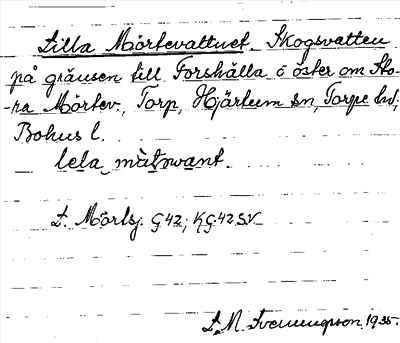 Lilla Mörtevattnet. Skogsvatten
på gränsen till Forshälla ö öster om Sto-
-ra Mörtev., Torp, Hjärtum sn, Torpe hd,
Bohus l.
lela mäṯwant.
L. Mörtsj. G 42; KG 42 SV
1935.